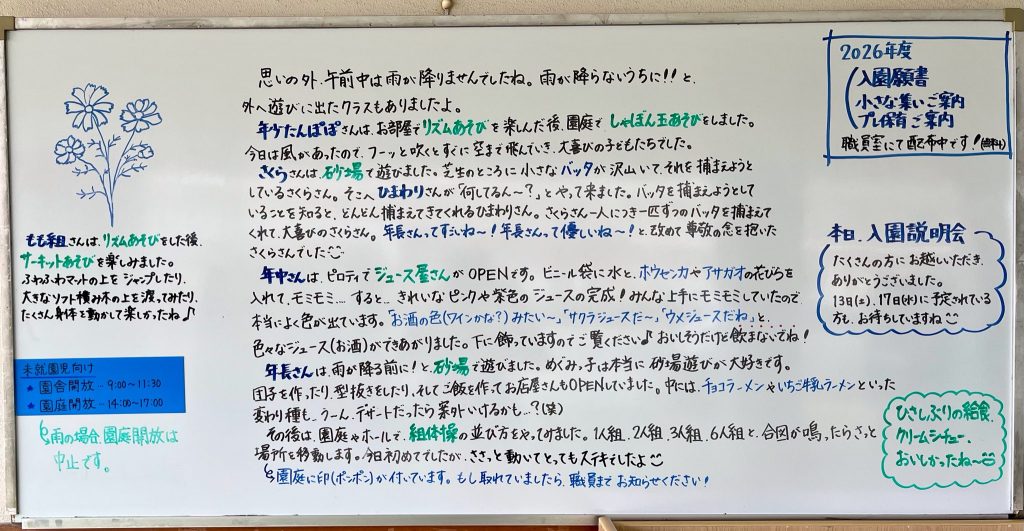 思いの外、午前中は雨が降りませんでしたね。雨が降らないうちに!!と、
外へ遊びに出たクラスもありましたよ。
年少たんぽぽさんは、お部屋でリズムあそびを楽しんだ後、園庭でしゃぼん玉あそびをしました。
今日は風があったので、フーッと吹くとすぐに空まで飛んでいき、大喜びの子どもたちでした。
さくらさんは、砂場で遊びました。芝生のところに小さなバッタが沢山いて、それを捕まえようと
しているさくらさん。そこへひまわりさんが「何してるん〜?」とやって来ました。バッタを捕まえようとして
いることを知ると、どんどん捕まえてきてくれるひまわりさん。さくらさん一人につき一匹ずつのバッタを捕まえて
くれて、大喜びのさくらさん。年長さんってすごいね〜!年長さんって優しいね〜!と、改めて尊敬の念を抱いた
さくらさんでした
年中さんは、ピロティでジュース屋さんがOPENです。ビニール袋に水と、ホウセンカやアサガオの花びらを
入れて、モミモミ.... すると... きれいなピンクや紫色のジュースの完成!みんな上手にモミモミしていたので、
本当によく色が出ています。「お酒の色(ワインかな?)みたい〜」「サクラジュースだ〜」「ウメジュースだね」と、
色々なジュース(お酒)ができあがりました。下に飾っていますのでご覧ください♪ おいしそうだけど飲まないでね!
年長さんは、雨が降る前に!と、砂場で遊びました。めぐみっ子は本当に砂場遊びが大好きです。
団子を作ったり、型抜きをしたり、そしてご飯を作ってお店屋さんもOPENしていました。中には、チョコラーメンやいちご牛乳ラーメンといった
変わり種も... うーん、デザートだったら案外いけるかも...?(笑)
その後は、園庭やホールで、組体操の並び方をやってみました。1人組、2人組、3人組、6人組と、合図が鳴ったらさっと
場所を移動します。今日初めてでしたが、ささっと動いてとってもステキでしたよ
園庭に印(ポンポン)が付いています。もし取れていましたら、職員までお知らせください!
もも組さんは、リズムあそびをした後、
サーキットあそびを楽しみました。
ふわふわマットの上をジャンプしたり、
大きなソフト積み木の上を渡ってみたり、
たくさん身体を動かして楽しかったね♪
未就園児向け
★ 園舎開放…9:00〜11:30
★ 園庭開放…14:00〜17:00
雨の場合、園庭開放は
中止です。
2026年度
入園願書
小さな集いご案内
プレ保育ご案内
職員室にて配布中です!(無料)
本日、入園説明会
たくさんの方にお越しいただき、
ありがとうございました。
13日(土)、17日(水)に予定されている
方も、お待ちしていますね
ひさしぶりの給食、
クリームシチュー、
おいしかったね〜